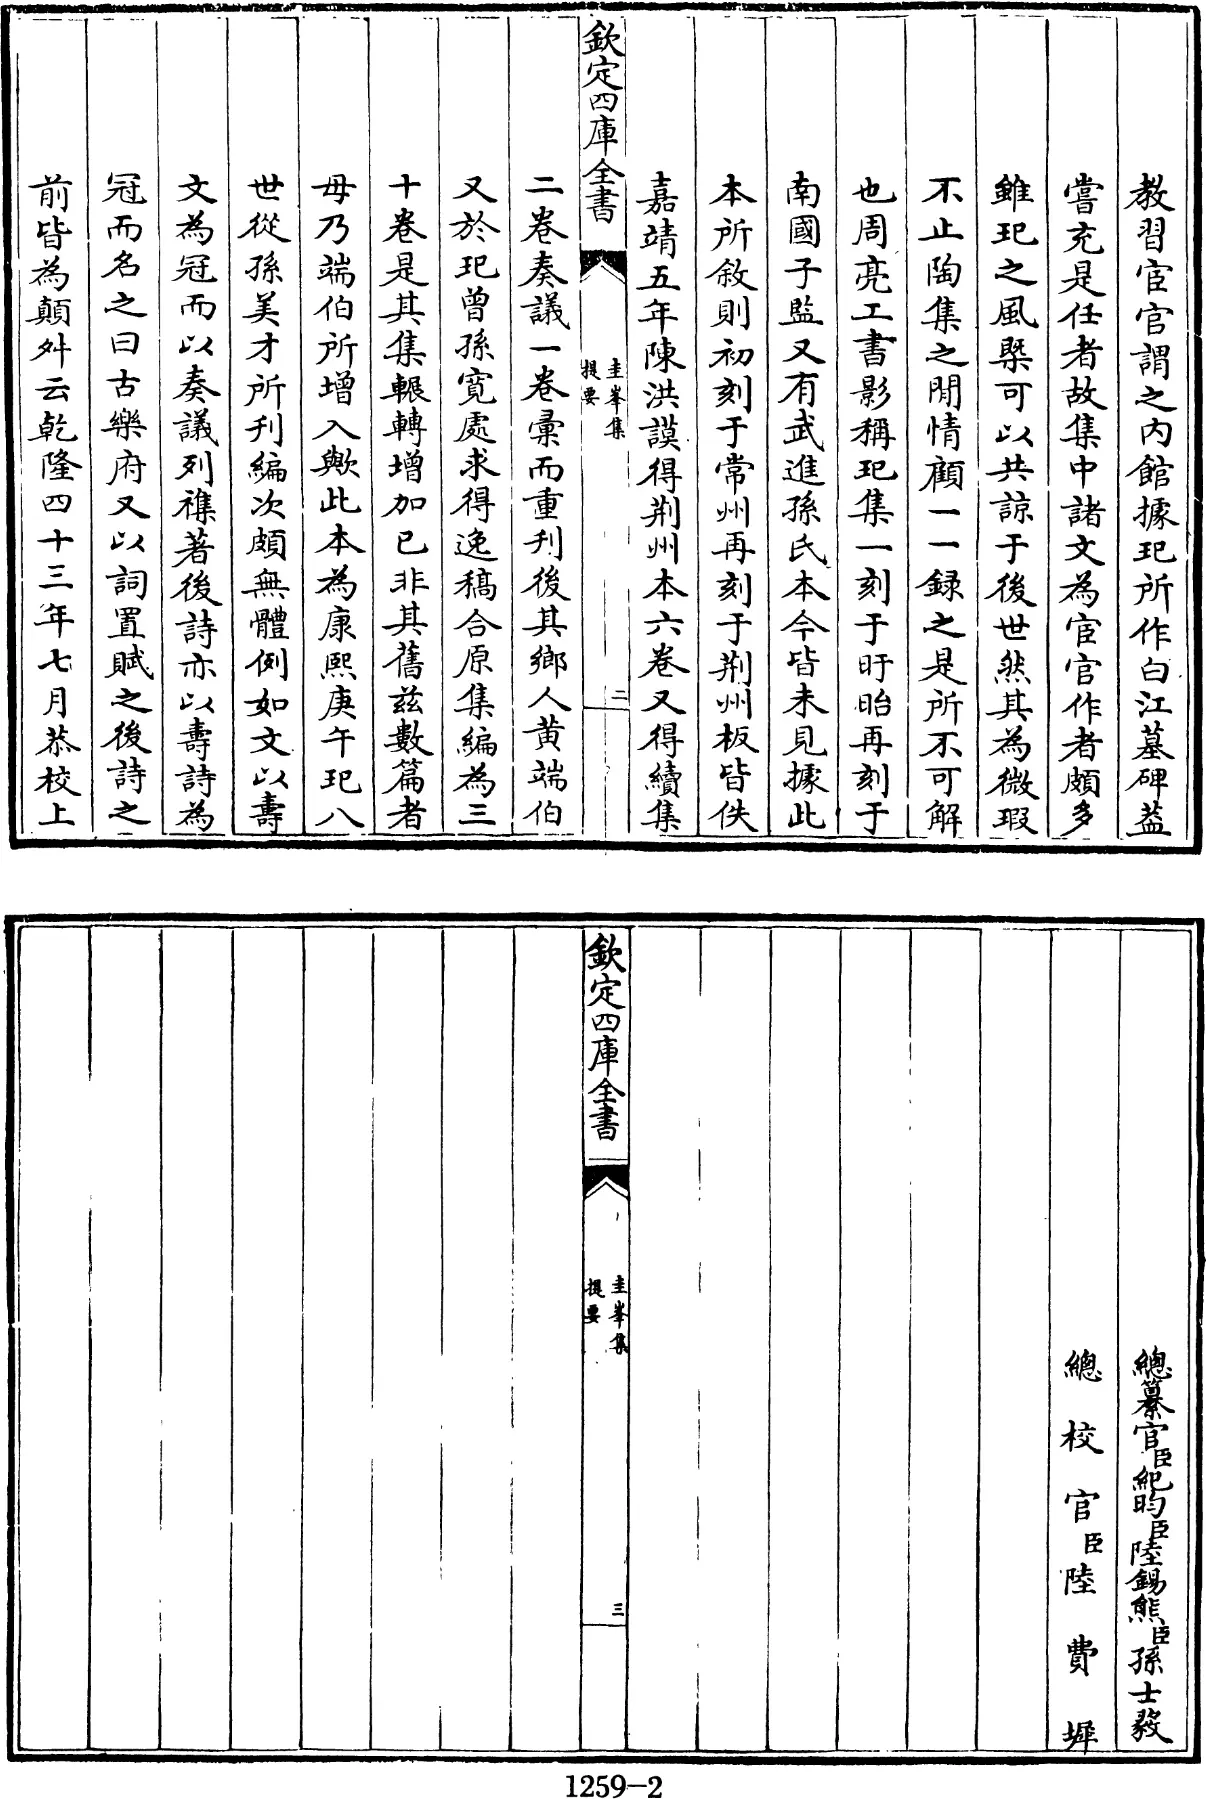 教習宦官謂之内館據玘所作白江墓碑葢
嘗充是任者故集中諸文為宦官作者頗多
雖玘之風槩可以共諒于後世然其為微瑕
不止陶集之閒情顧一一録之是所不可解
也周亮工書影稱玘集一刻于盱眙再刻于
南國子監又有武進孫氏本今皆未見據此
本所敘則初刻于常州再刻于荆州板皆佚
嘉靖五年陳洪謨得荆州本六卷又得續集
欽定四庫全書
圭峯集
提要
二
二卷奏議一卷彚而重刋後其鄉人黄端伯
又於玘曾孫寛處求得逸稿合原集編為三
十卷是其集輾轉增加已非其舊兹數篇者
毋乃端伯所增入歟此本為康熙庚午玘八
世從孫美才所刋編次頗無體例如文以壽
文為冠而以奏議列襍著後詩亦以壽詩為
冠而名之曰古樂府又以詞置賦之後詩之
前皆為顛舛云乾隆四十三年七月恭校上
總纂官臣紀昀臣陸錫熊臣孫士毅
總校官臣陸費墀
欽定四庫全書
圭峯集
提要
三
1259-2